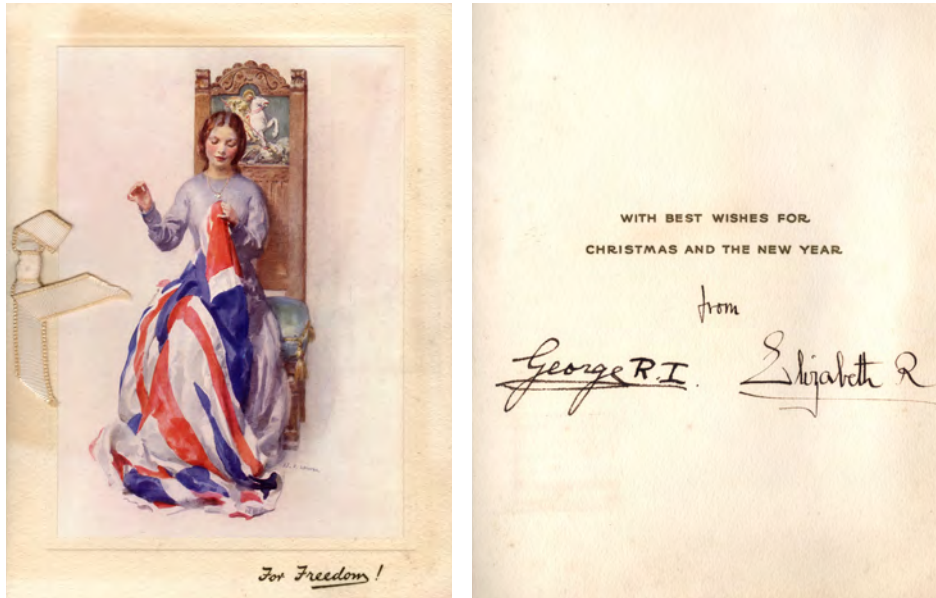 For Freedom!
WITH BEST WISHES FOR
CHRISTMAS AND THE NEW YEAR
from
George R.I.
Elizabeth R